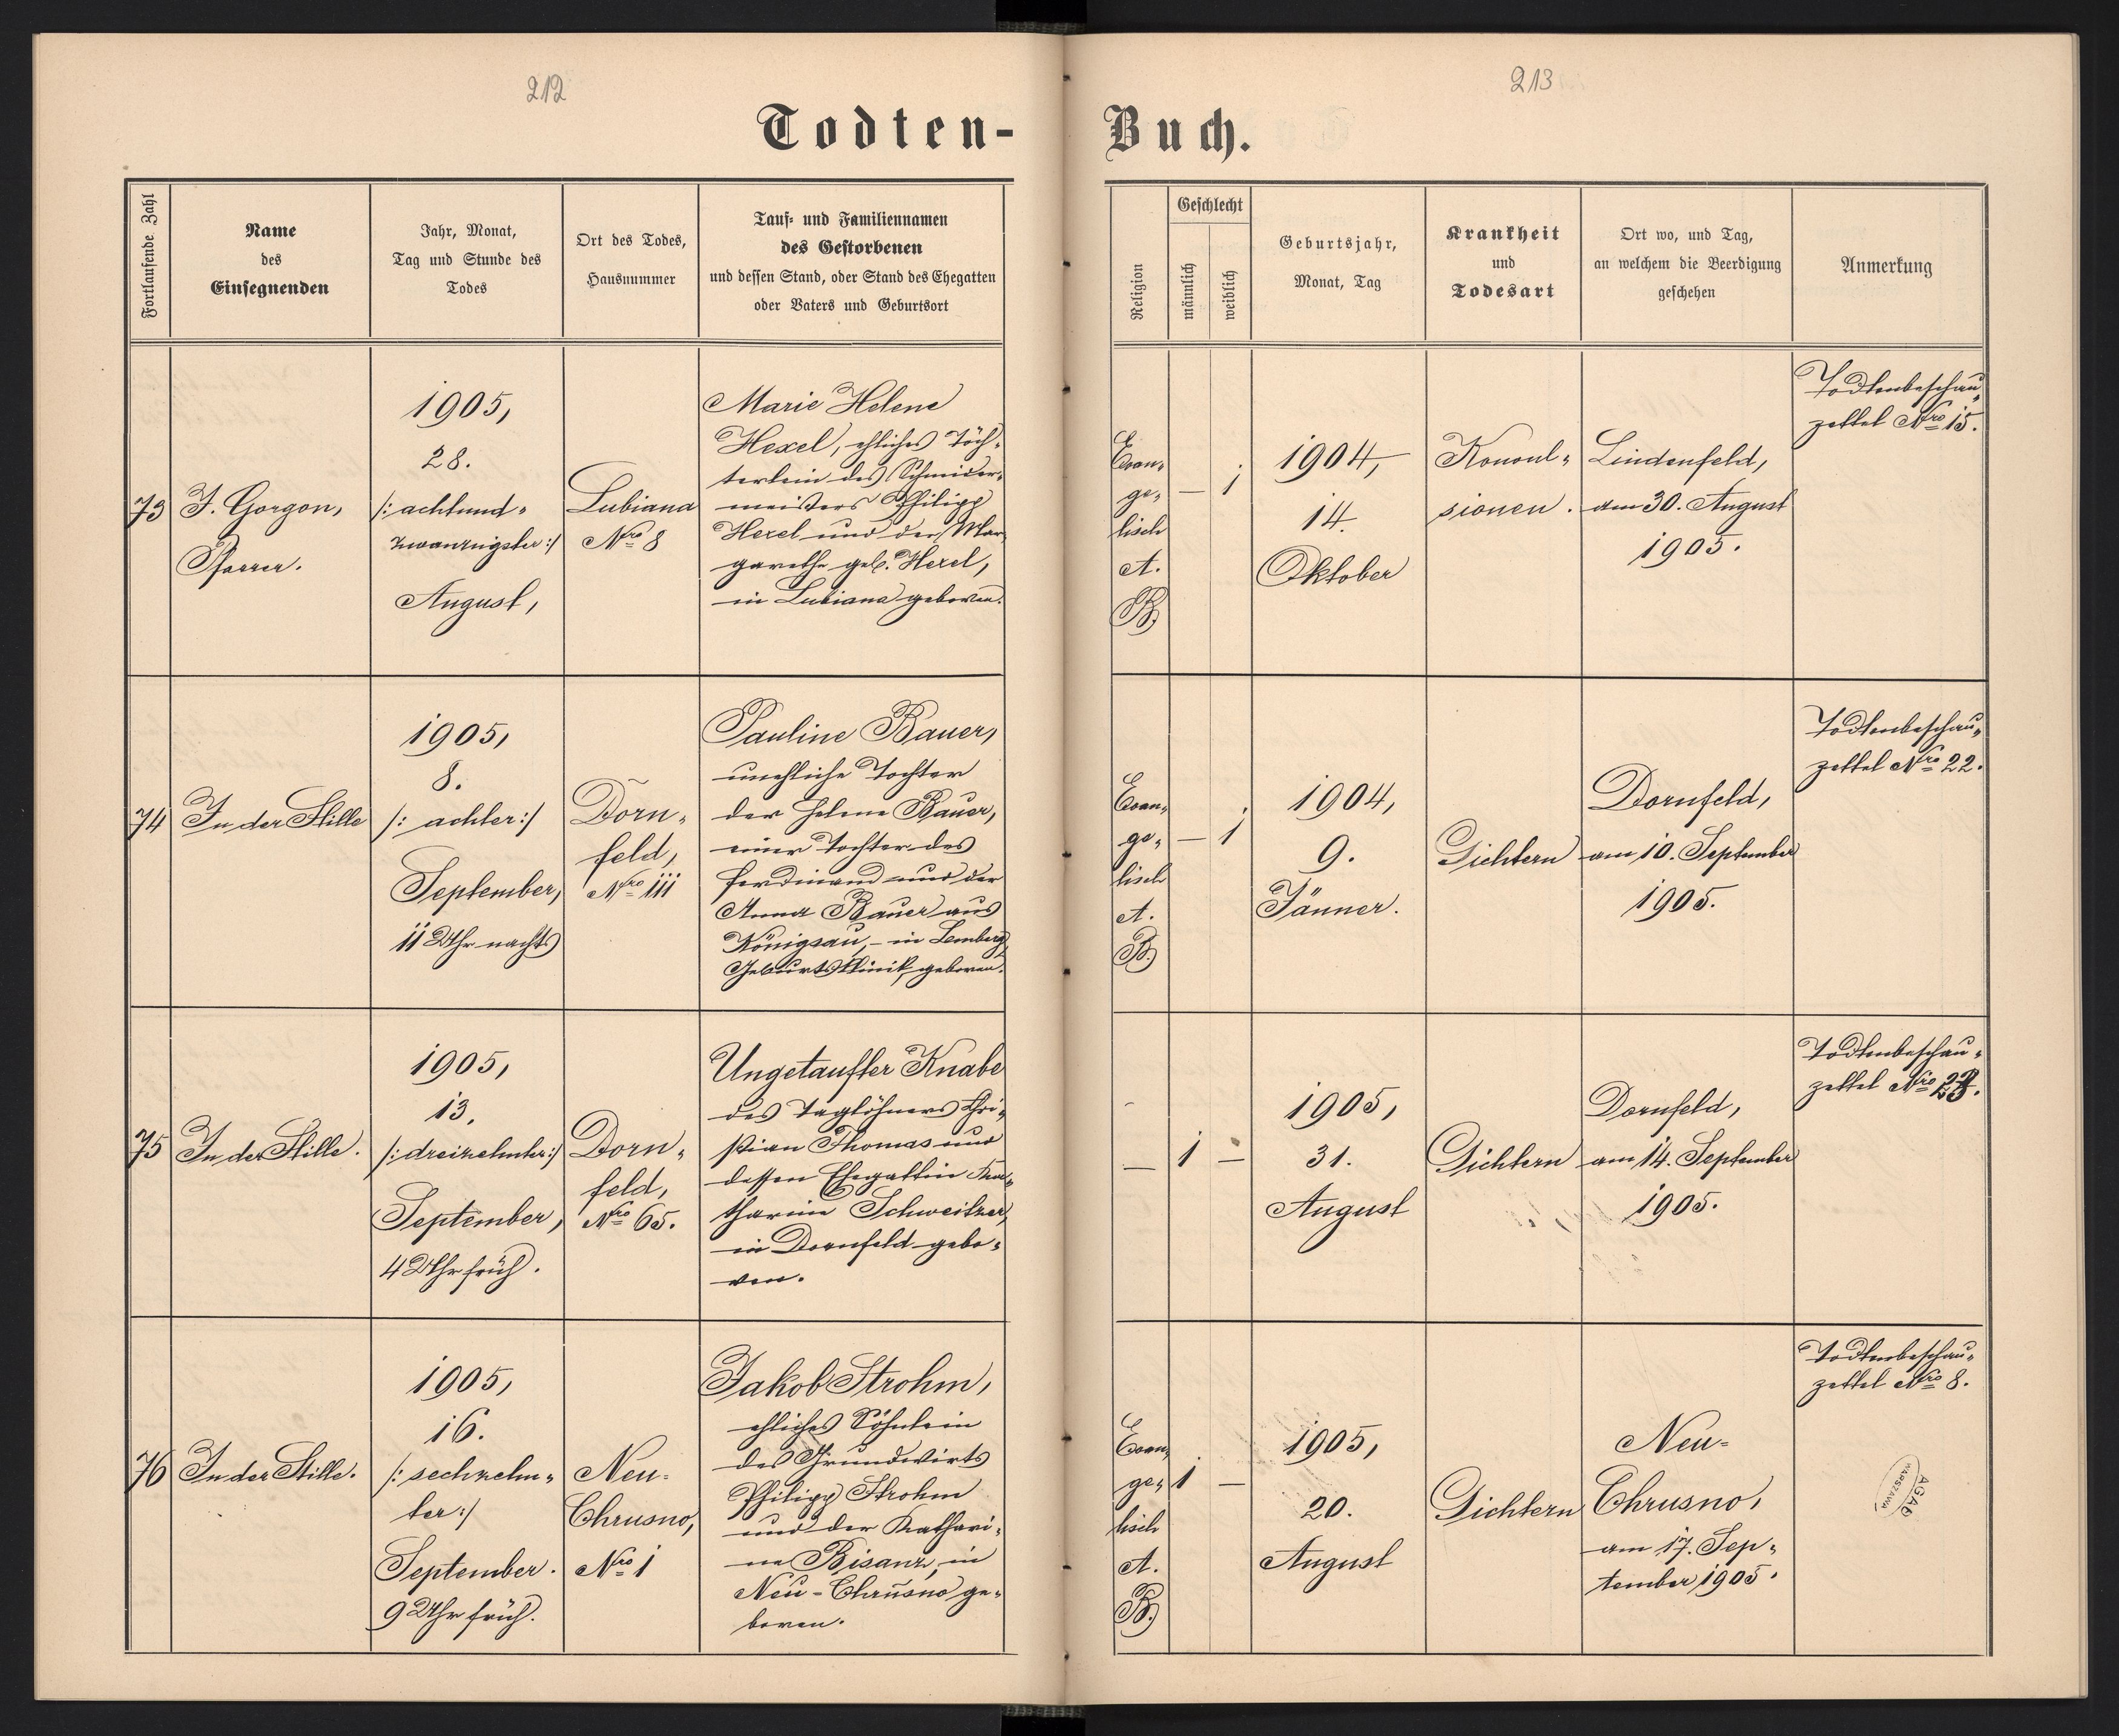 212
213
Todten-
Buch.
Fortlaufende Zahl
Name
des
Einsegnenden
Jahr, Monat,
Tag und Stunde des
Todes
Ort des Todes,
Hausnummer
Tauf- und Familiennamen
des Gestorbenen
und dessen Stand, oder Stand des Ehegatten
oder Vaters und Geburtsort
Religion
Geschlecht
männlich
weiblich
Geburtsjahr,
Monat, Tag
Krankheit
und
Todesart
Ort wo, und Tag,
an welchem die Beerdigung
geschehen
Anmerkung
73
J. Gorgon,
Pfarrer.
1905,
28.
/: achtund-
zwanzigster :/
August,
Lubiana
Nro 8
Marie Helene
Hexel, ehliches Töch-
terlein des Schmider-
meisters Philipp
Hexel und der Mar-
garethe geb. Hexel,
in Lubiana geboren.
Evan-
ge-
lisch
A.
B.
— 1
1904,
14.
Oktober
Konvul-
sionen.
Lindenfeld,
am 30. August
1905.
Todtenbeschau-
zettel Nro 15.
74
In der Stille
1905,
8.
/: achter :/
September,
11 Uhr nachts
Dorn-
feld,
Nro 111
Pauline Bauer,
unehliche Tochter
der Helene Bauer,
einer Tochter des
Ferdinand und der
Anna Bauer aus
Königsau, - in Lemberg,
Geburtsklinik, geboren.
Evan-
ge-
lisch
A.
B.
— 1
1904,
9.
Jänner.
Gichtern
Dornfeld,
am 10. September
1905.
Todtenbeschau-
zettel Nro 22.
75
In der Stille.
1905,
13.
/: dreizehnter :/
September,
4 Uhr früh.
Dorn-
feld,
Nro 65.
Ungetaufter Knabe
des Taglöhners Chri-
stian Thomas und
dessen Ehegattin Ka-
tharine Schweitzer,
in Dornfeld gebo-
ren.
—
1 —
1905,
31.
August
Gichtern
Dornfeld,
am 14. September
1905.
Todtenbeschau-
zettel Nro 23.
76
In der Stille.
1905,
16.
/: sechzehn-
ter :/
September.
9 Uhr früh.
Neu-
Chrusno,
Nro 1
Jakob Strohm,
ehliches Söhnlein
des Grundwirts
Philipp Strohm
und der Kathari-
na Bisanz, in
Neu-Chrusno ge-
boren.
Evan-
ge-
lisch
A.
B.
1 —
1905,
20.
August
Gichtern
Neu-
Chrusno,
am 17. Sep-
tember 1905.
Todtenbeschau-
zettel Nro 8.
AGAD
WARSZAWA